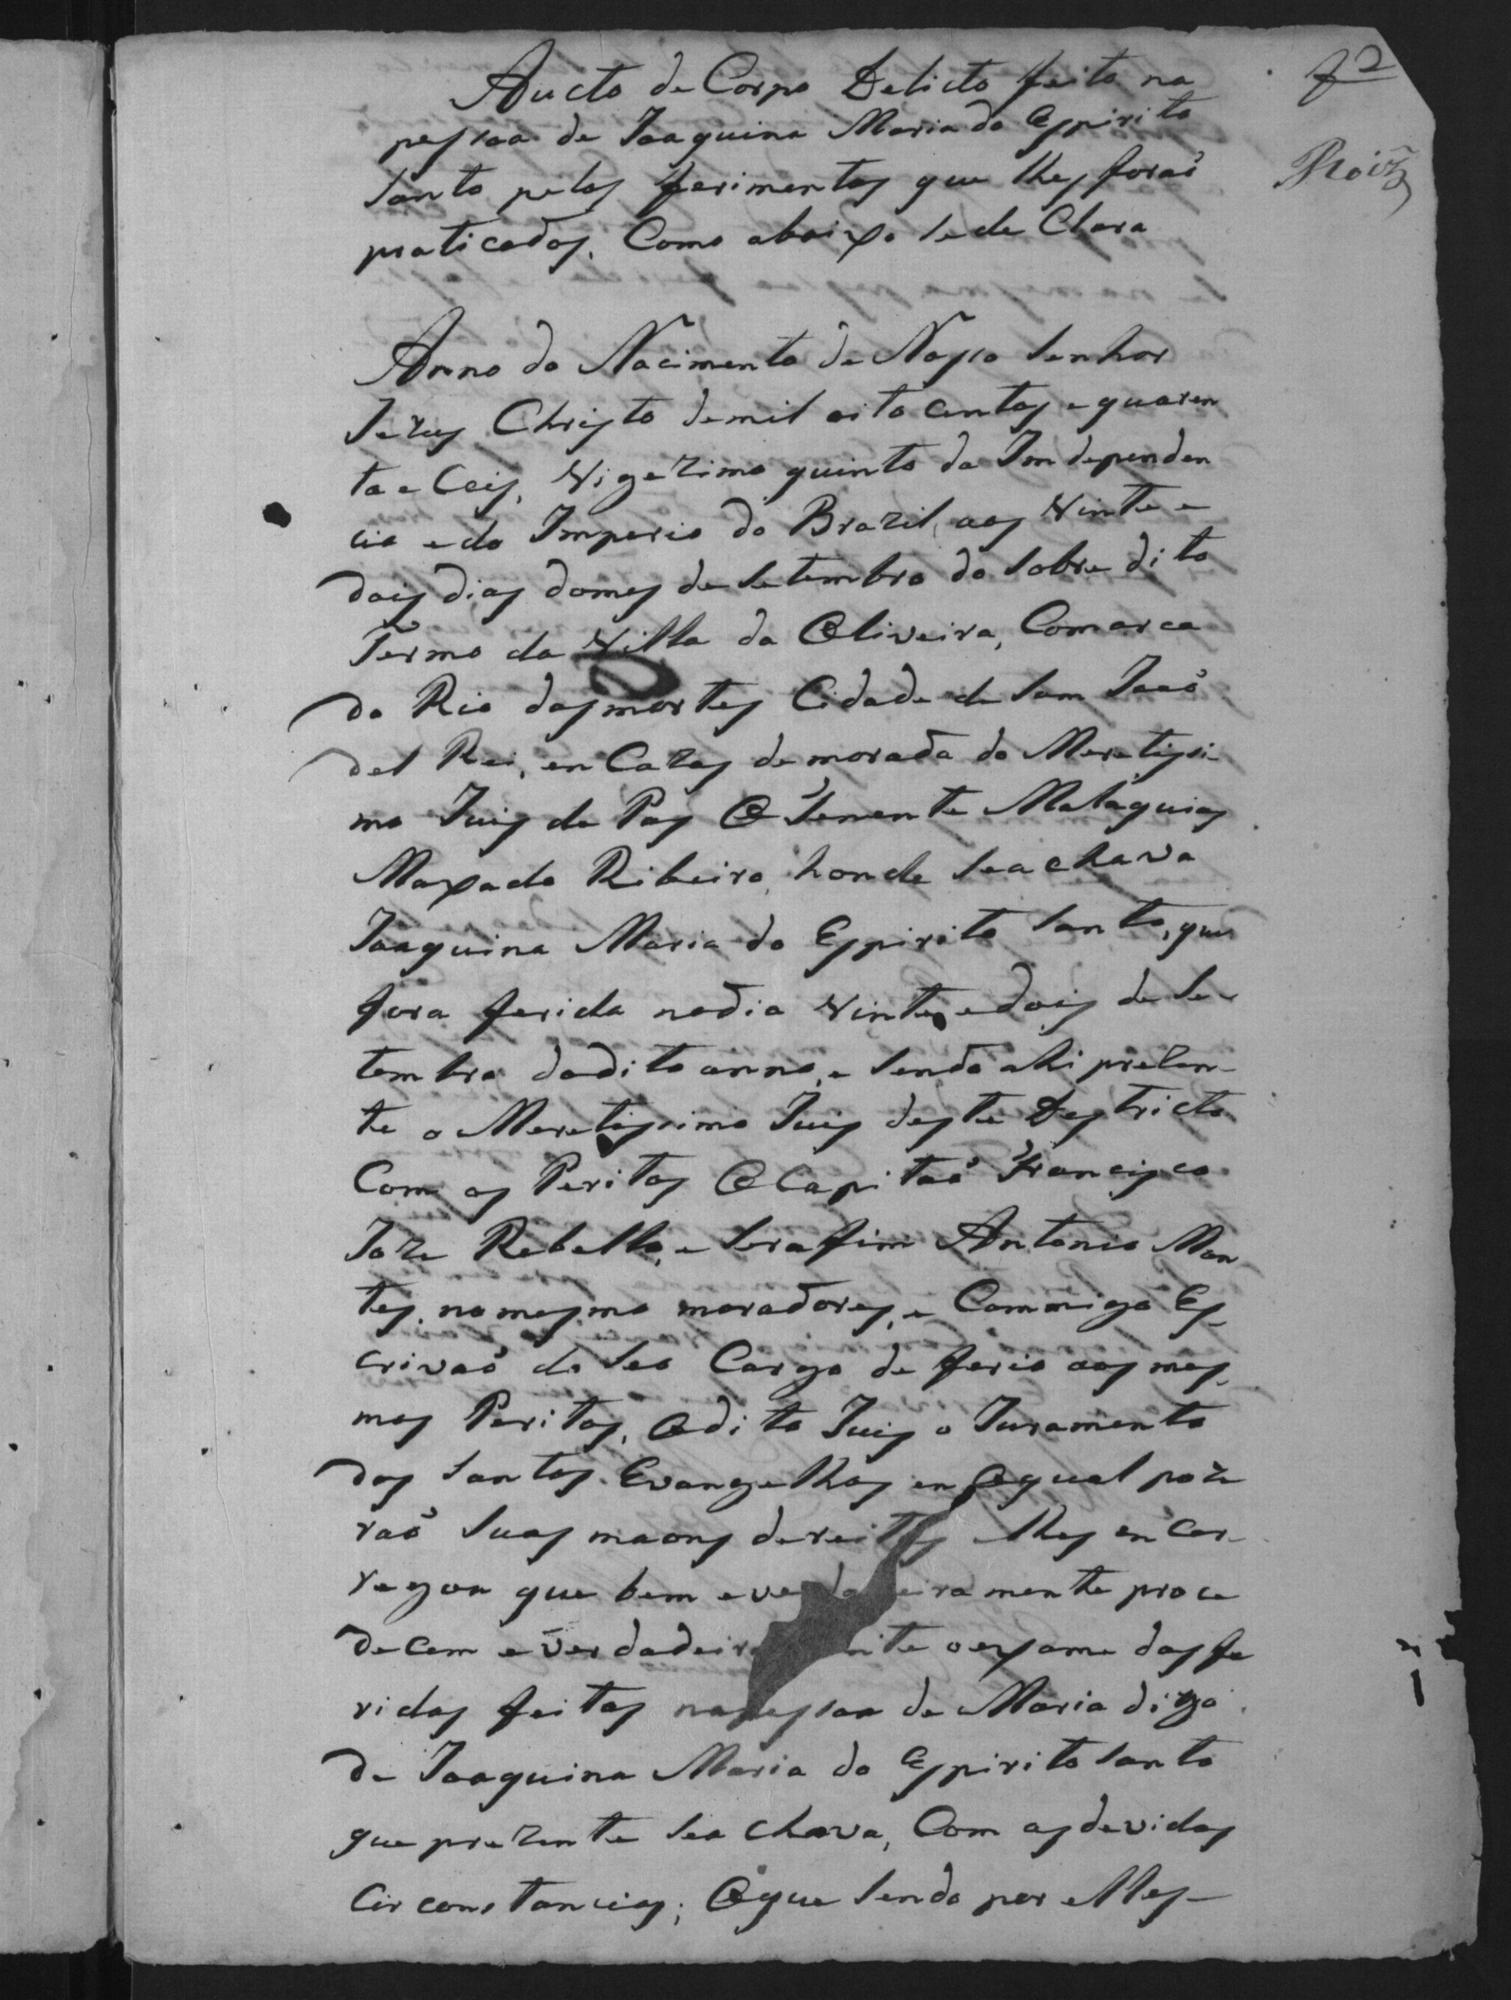 f 2
Roiz
Aucto de Corpo Delicto feito na
pessoa de Joaquina Maria do Espirito
Santo pelos ferimentos que lhes foraõ
praticados, Como abaixo Sede Clara
Anno do Nacimento de Nosso Senhor
Jezus Christo demil oito centos e quaren
ta e Ceis, Vigezimo quinto da Independen
cia e do Imperio do Brazil, aos Vinte e
dois dias domes de Setembro do Sobre dito
Termo da Villa da Oliveira, Comarca
do Rio dasmortes Cidade de Sam Joaõ
del Rei, en Cazas demorada do Meretissi-
mo Juis de Pas O Tenente Malaquias
Maxado Ribeiro, honde Seachava
Joaquina Maria do Espirito Santo, que
fora ferida nodia Vinte edois de Se-
tembro dodito anno, e Sendo ahi prezen-
te o Meretissimo Juis deste Destricto
Com os Peritos O Capitaõ Francisco
Joze Rebello, e Serafim Antonio Mon
tes, nomesmo moradores, e Commigo Es
crivaõ de Seo Cargo de ferio aos mes
mos Peritos, Odito Juis o Juramento
dos Santos Evangelhos en Oqual poze
raõ Suas maons dereitas elhes en Car-
regou que bem everdadeiramente proce
decem e verdadeiramente oexame dasfe
ridas feitas napessoa de Maria digo
de Joaquina Maria do Espirito Santo
que prezente Sea chava, Com asdevidas
Circonstancias; Oque Sendo por elles-